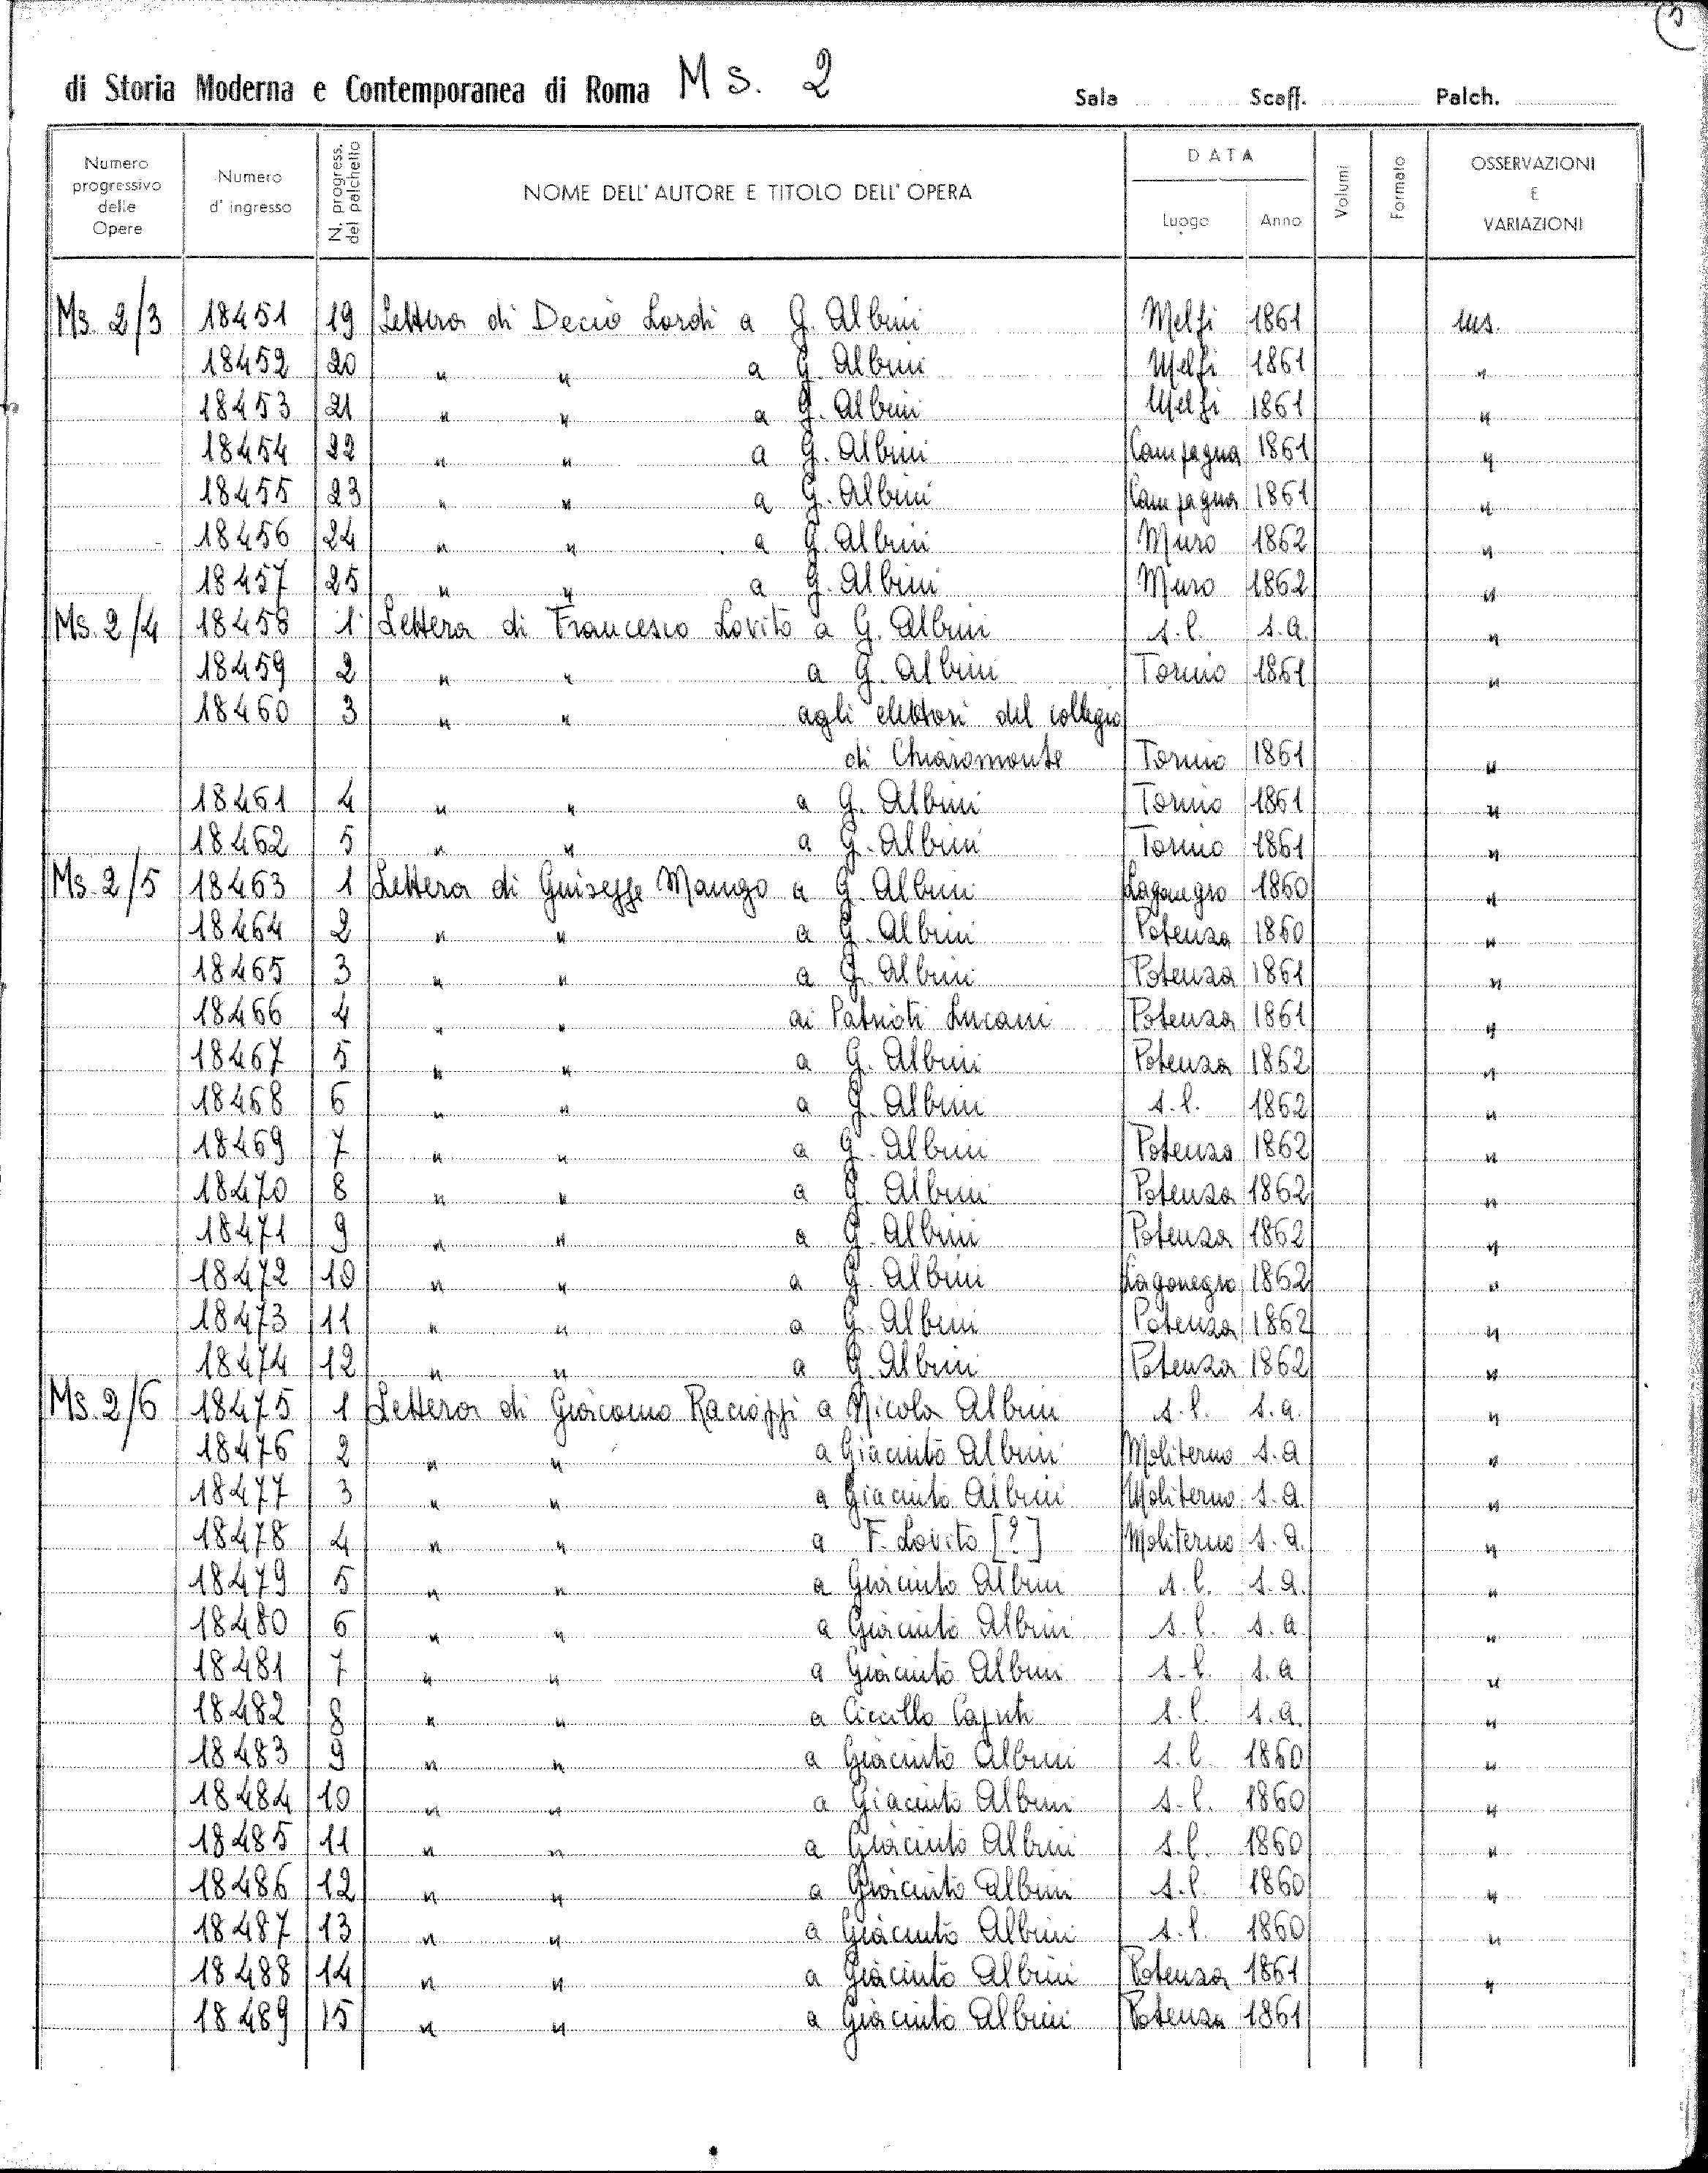 3
di Storia Moderna e Contemporanea di Roma Ms. 2 Sala Scaff. Palch.
Numero progressivo delle Opere | Numero d'ingresso | N. progress. del palchetto | NOME DELL'AUTORE E TITOLO DELL'OPERA | DATA Luogo Anno | Volumi | Formato | OSSERVAZIONI E VARIAZIONI
Ms. 2/3 18451 19 Lettera di Decio Lordi a G. Albini Melfi 1861 ms.
18452 20 " " a G. Albini Melfi 1861 "
18453 21 " " a G. Albini Melfi 1861 "
18454 22 " " a G. Albini Campagna 1861 "
18455 23 " " a G. Albini Campagna 1861 "
18456 24 " " a G. Albini Muro 1862 "
18457 25 " " a G. Albini Muro 1862 "
Ms. 2/4 18458 1 Lettera di Francesco Lovito a G. Albini s.l. s.a. "
18459 2 " " a G. Albini Torino 1861 "
18460 3 " " agli elettori del collegio
di Chiaromonte Torino 1861 "
18461 4 " " a G. Albini Torino 1861 "
18462 5 " " a G. Albini Torino 1861 "
Ms. 2/5 18463 1 Lettera di Guiseppe Mango a G. Albini Lagongro 1860 "
18464 2 " " a G. Albini Potenza 1860 "
18465 3 " " a G. Albini Potenza 1861 "
18466 4 " " ai Patrioti Lucani Potenza 1861 "
18467 5 " " a G. Albini Potenza 1862 "
18468 6 " " a G. Albini s.l. 1862 "
18469 7 " " a G. Albini Potenza 1862 "
18470 8 " " a G. Albini Potenza 1862 "
18471 9 " " a G. Albini Potenza 1862 "
18472 10 " " a G. Albini Lagonegro 1862 "
18473 11 " " a G. Albini Potenza 1862 "
18474 12 " " a G. Albini Potenza 1862 "
Ms. 2/6 18475 1 Lettera di Giacomo Racioppi a Nicola Albini s.l. s.a. "
18476 2 " " a Giacinto Albini Moliterno s.a "
18477 3 " " a Giacinto Albini Moliterno s.a. "
18478 4 " " a F. Lovito [?] Moliterno s.a. "
18479 5 " " a Giacinto Albini s.l. s.a. "
18480 6 " " a Giacinto Albini s.l. s.a. "
18481 7 " " a Giacinto Albini s.l. s.a "
18482 8 " " a Ciccillo Caputi s.l. s.a. "
18483 9 " " a Giacinto Albini s.l. 1860 "
18484 10 " " a Giacinto Albini s.l. 1860 "
18485 11 " " a Giacinto Albini s.l. 1860 "
18486 12 " " a Giacinto Albini s.l. 1860 "
18487 13 " " a Giacinto Albini s.l. 1860 "
18488 14 " " a Giacinto Albini Potenza 1861 "
18489 15 " " a Giacinto Albini Potenza 1861